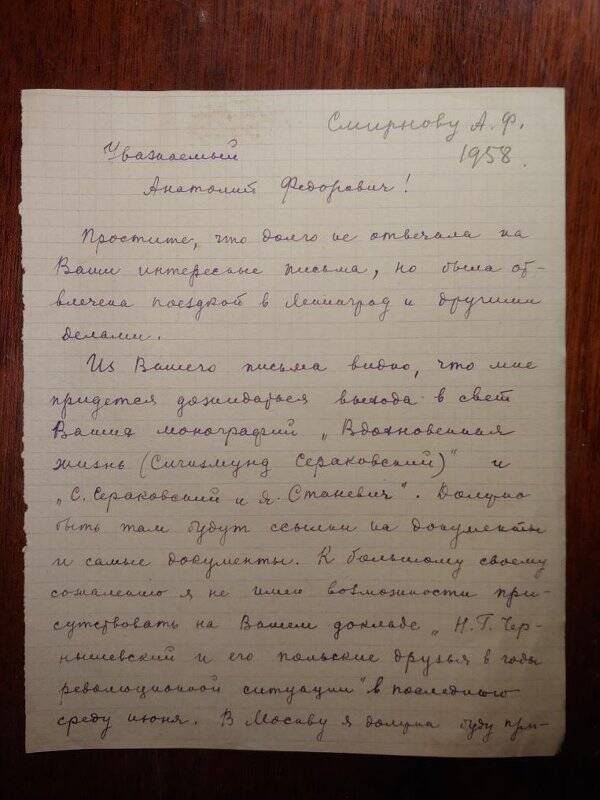 Смирнову А.Ф.
1958.
Уважаемый
Анатолий Федорович!
Простите, что долго не отвечала на
Ваши интересные письма, но была от-
влечена поездкой в Ленинград и другими
делами.
Из Вашего письма видно, что мне
придется дожидаться выхода в свет
Ваших монографий „Вдохновенная
жизнь (Сигизмунд Сераковский)" и
„С. Сераковский и Я. Станевич". Должно
быть там будут ссылки на документы
и самые документы. К большому своему
сожалению я не имею возможности при-
сутствовать на Вашем докладе „Н.Г. Чер-
нышевский и его польские друзья в годы
революционной ситуации" в последнюю
среду июня. В Москву я должна буду при-